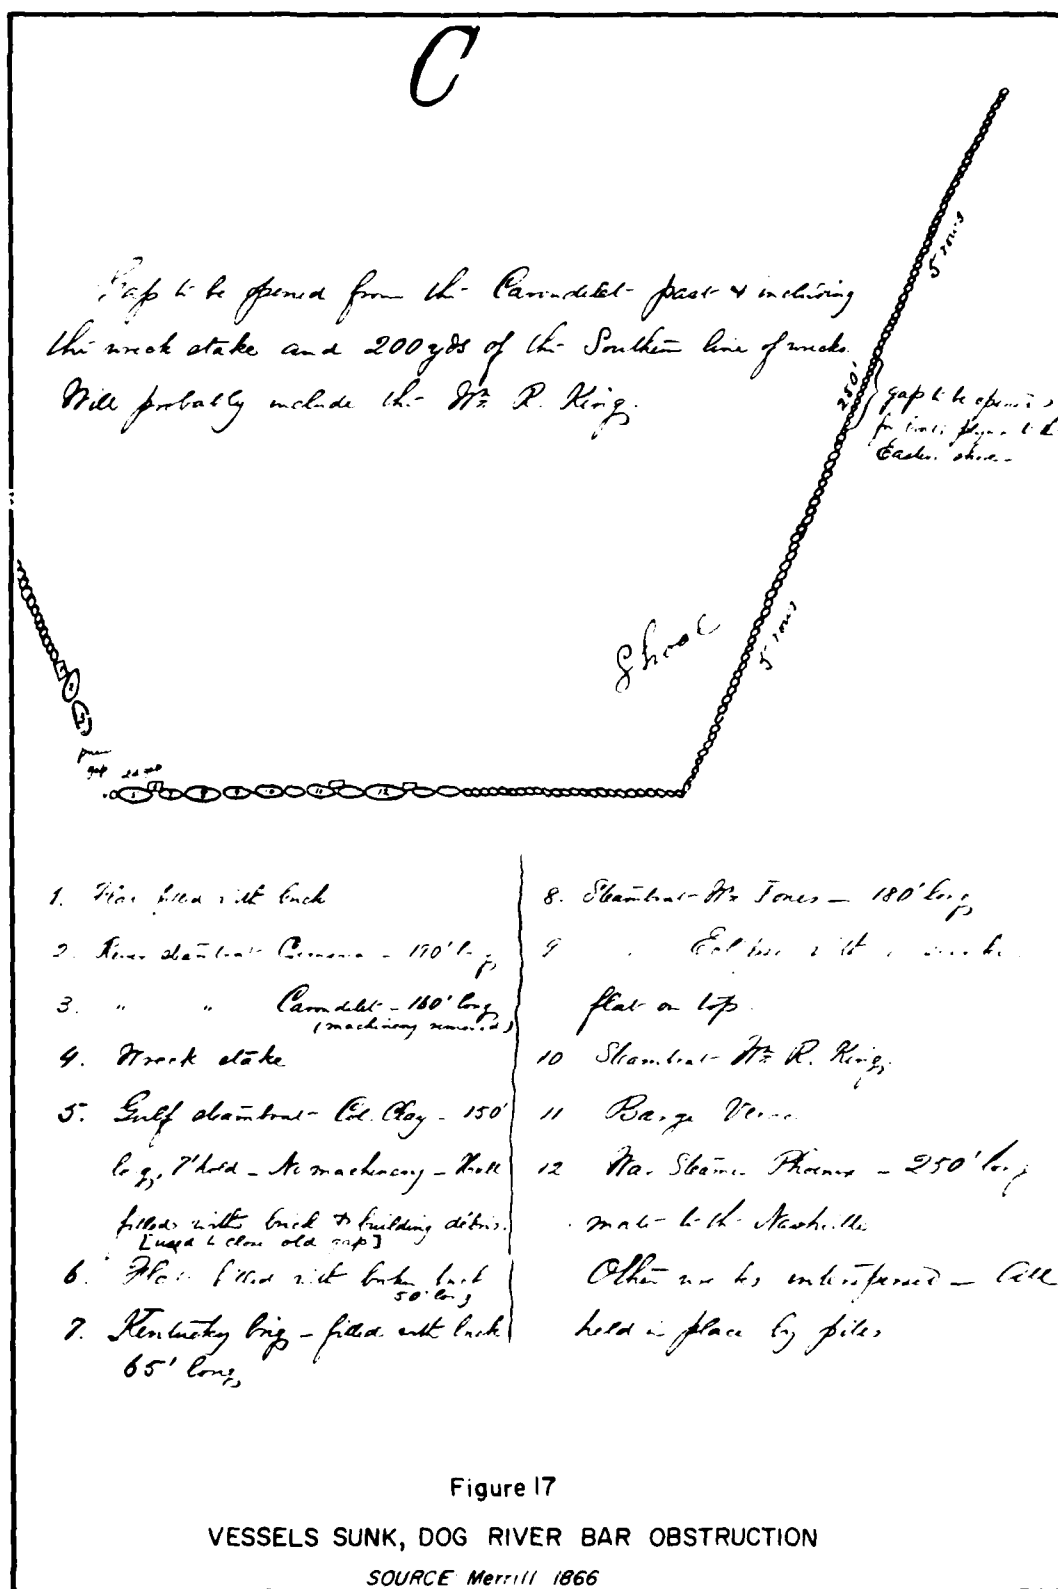 C
Gap to be opened from the Carondelet past & including
the wreck stake and 200 yds of the Southern line of wrecks.
Will probably include the Wm R. King.
5 rows
250'
gap to be opened
for boats plying to the
Eastern shore
Shoal
5 rows
gap
1. Flat filled with brick
2. River steamboat - 170' long
3. " " Carondelet - 160' long
(machinery removed)
4. Wreck stake
5. Gulf steamboat - Col. Clay - 150'
long, 7' hold - No machinery - Hull
filled with brick & building débris.
[used to close old gap]
6. Flat filled with broken brick
50' long
7. Kentucky brig - filled with brick
65' long
8. Steamboat - Wm Jones - 180' long
9 with
flat on top.
10 Steamboat - Wm R. King.
11 Barge
12 War Steamer Phoenix - 250' long
mate to the Nashville
Other wrecks interspersed - all
held in place by piles
Figure 17
VESSELS SUNK, DOG RIVER BAR OBSTRUCTION
SOURCE Merrill 1866